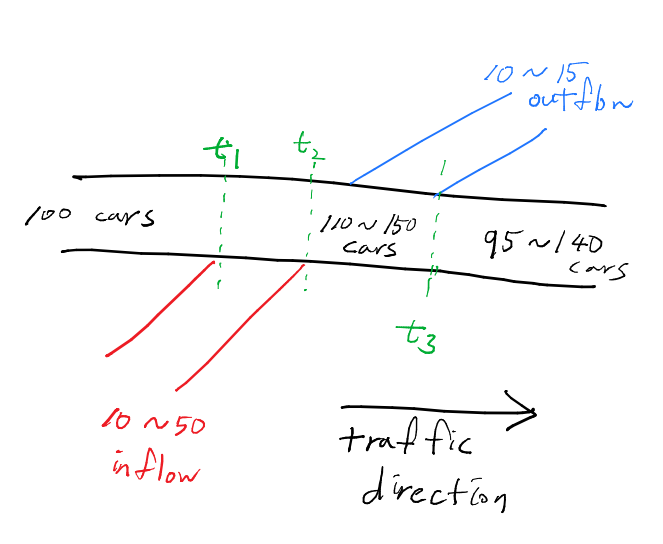 10 ~ 15
outflow
t1
t2
100 cars
110 ~ 150
cars
95 ~ 140
cars
t3
10 ~ 50
inflow
traffic
direction